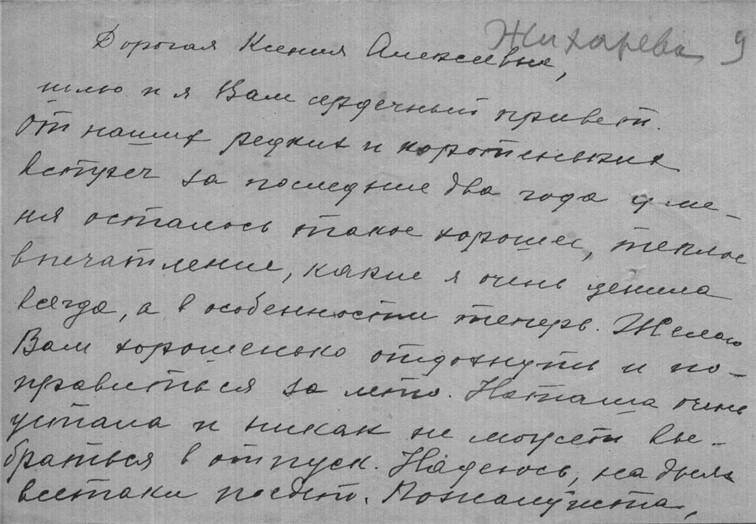 Жихарева 9
Дорогая Ксения Алексеевна,
шлю и я Вам сердечный привет.
От наших редких и коротеньких
встреч за последние два года у ме-
ня осталось такое хорошее, теплое
впечатление, какие я очень ценила
всегда, а в особенности теперь. Желаю
Вам хорошенько отдохнуть и по-
правиться за лето. Наташа очень
устала и никак не может вы-
браться в отпуск. Надеюсь, на днях
всетаки поедет. Пожалуйста,